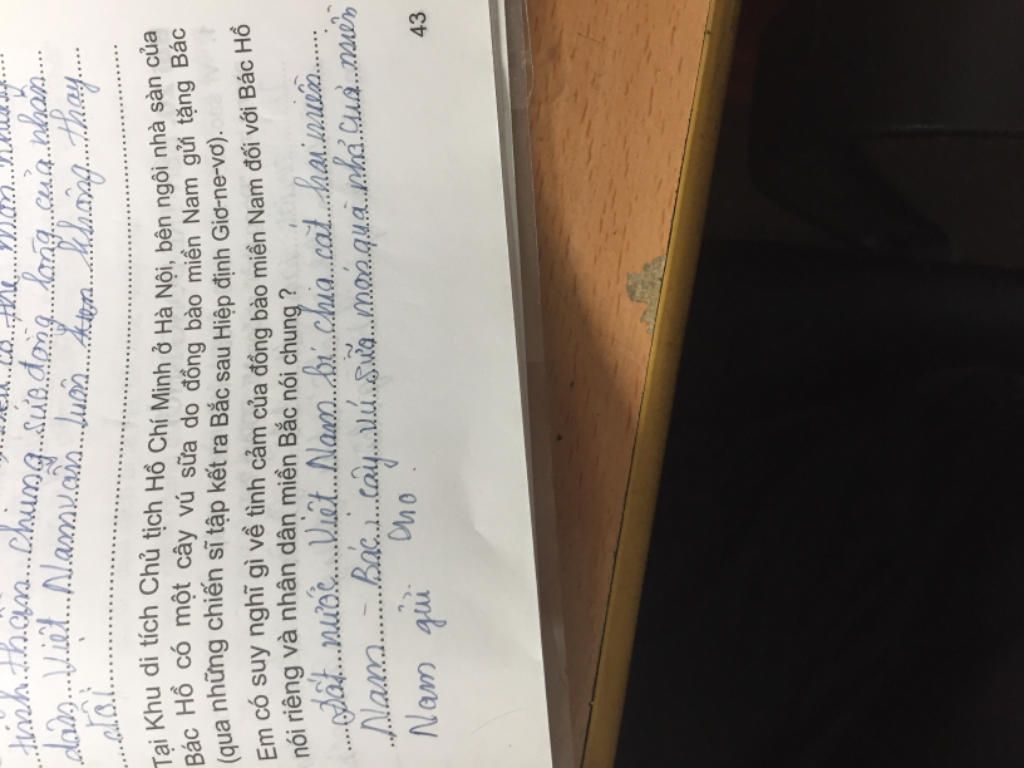 tinh thần chung sức đồng lòng của nhân
dân Việt Nam vẫn luôn không thay
Tại Khu di tích Chủ tịch Hồ Chí Minh ở Hà Nội, bên ngôi nhà sàn của
Bác Hồ có một cây vú sữa do đồng bào miền Nam gửi tặng Bác
(qua những chiến sĩ tập kết ra Bắc sau Hiệp định Giơ-ne-vơ).
Em có suy nghĩ gì về tình cảm của đồng bào miền Nam đối với Bác Hồ
nói riêng và nhân dân miền Bắc nói chung ?
đất nước Việt Nam bị chia cắt hai miền
Nam - Bác i cây vú sữa món quà nhỏ của miền
Nam gửi cho
43